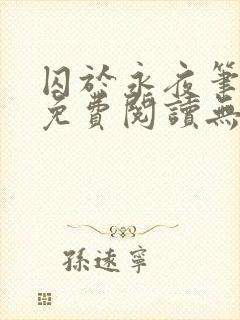 囚於永夜筆
免費閱讀無
孫遠寧